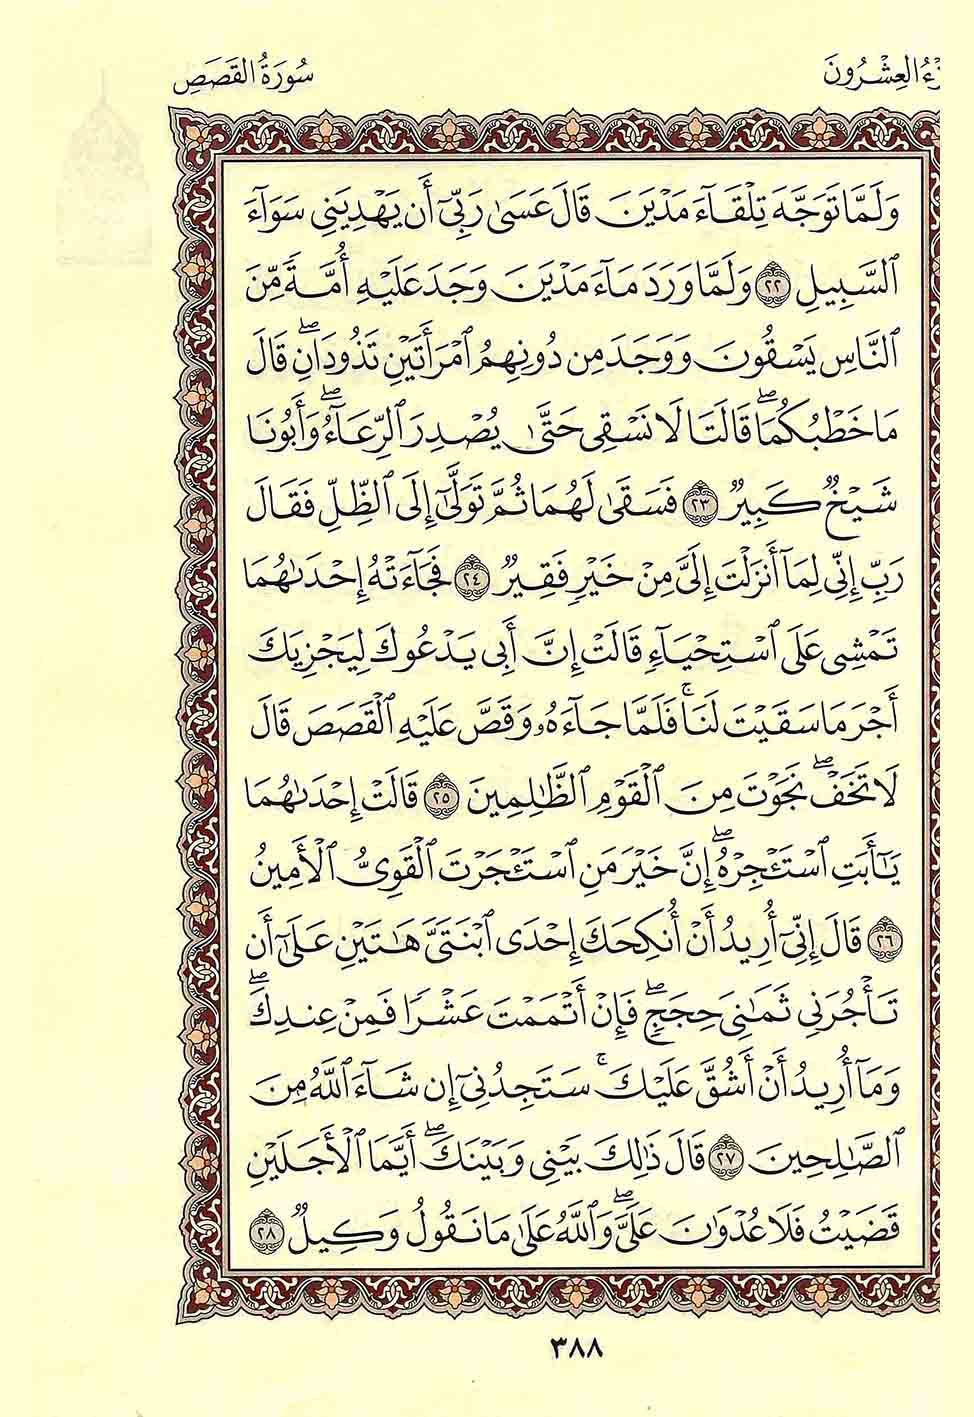 سُورَةُ القَصَصِ
العِشْرُونَ
وَلَمَّا تَوَجَّهَ تِلْقَآءَ مَدْيَنَ قَالَ عَسَىٰ رَبِّىٓ أَن يَهْدِيَنِى سَوَآءَ
ٱلسَّبِيلِ ٢٢ وَلَمَّا وَرَدَ مَآءَ مَدْيَنَ وَجَدَ عَلَيْهِ أُمَّةً مِّنَ
ٱلنَّاسِ يَسْقُونَ وَوَجَدَ مِن دُونِهِمُ ٱمْرَأَتَيْنِ تَذُودَانِ ۖ قَالَ
مَا خَطْبُكُمَا ۖ قَالَتَا لَا نَسْقِى حَتَّىٰ يُصْدِرَ ٱلرِّعَآءُ ۖ وَأَبُونَا
شَيْخٌ كَبِيرٌ ٢٣ فَسَقَىٰ لَهُمَا ثُمَّ تَوَلَّىٰٓ إِلَى ٱلظِّلِّ فَقَالَ
رَبِّ إِنِّى لِمَآ أَنزَلْتَ إِلَىَّ مِنْ خَيْرٍ فَقِيرٌ ٢٤ فَجَآءَتْهُ إِحْدَىٰهُمَا
تَمْشِى عَلَى ٱسْتِحْيَآءٍ قَالَتْ إِنَّ أَبِى يَدْعُوكَ لِيَجْزِيَكَ
أَجْرَ مَا سَقَيْتَ لَنَا ۚ فَلَمَّا جَآءَهُۥ وَقَصَّ عَلَيْهِ ٱلْقَصَصَ قَالَ
لَا تَخَفْ ۖ نَجَوْتَ مِنَ ٱلْقَوْمِ ٱلظَّٰلِمِينَ ٢٥ قَالَتْ إِحْدَىٰهُمَا
يَٰٓأَبَتِ ٱسْتَـْٔجِرْهُ ۖ إِنَّ خَيْرَ مَنِ ٱسْتَـْٔجَرْتَ ٱلْقَوِىُّ ٱلْأَمِينُ
٢٦ قَالَ إِنِّىٓ أُرِيدُ أَنْ أُنكِحَكَ إِحْدَى ٱبْنَتَىَّ هَٰتَيْنِ عَلَىٰٓ أَن
تَأْجُرَنِى ثَمَٰنِىَ حِجَجٍ ۖ فَإِنْ أَتْمَمْتَ عَشْرًا فَمِنْ عِندِكَ ۖ
وَمَآ أُرِيدُ أَنْ أَشُقَّ عَلَيْكَ ۚ سَتَجِدُنِىٓ إِن شَآءَ ٱللَّهُ مِنَ
ٱلصَّٰلِحِينَ ٢٧ قَالَ ذَٰلِكَ بَيْنِى وَبَيْنَكَ ۖ أَيَّمَا ٱلْأَجَلَيْنِ
قَضَيْتُ فَلَا عُدْوَٰنَ عَلَىَّ ۖ وَٱللَّهُ عَلَىٰ مَا نَقُولُ وَكِيلٌ ٢٨
٣٨٨